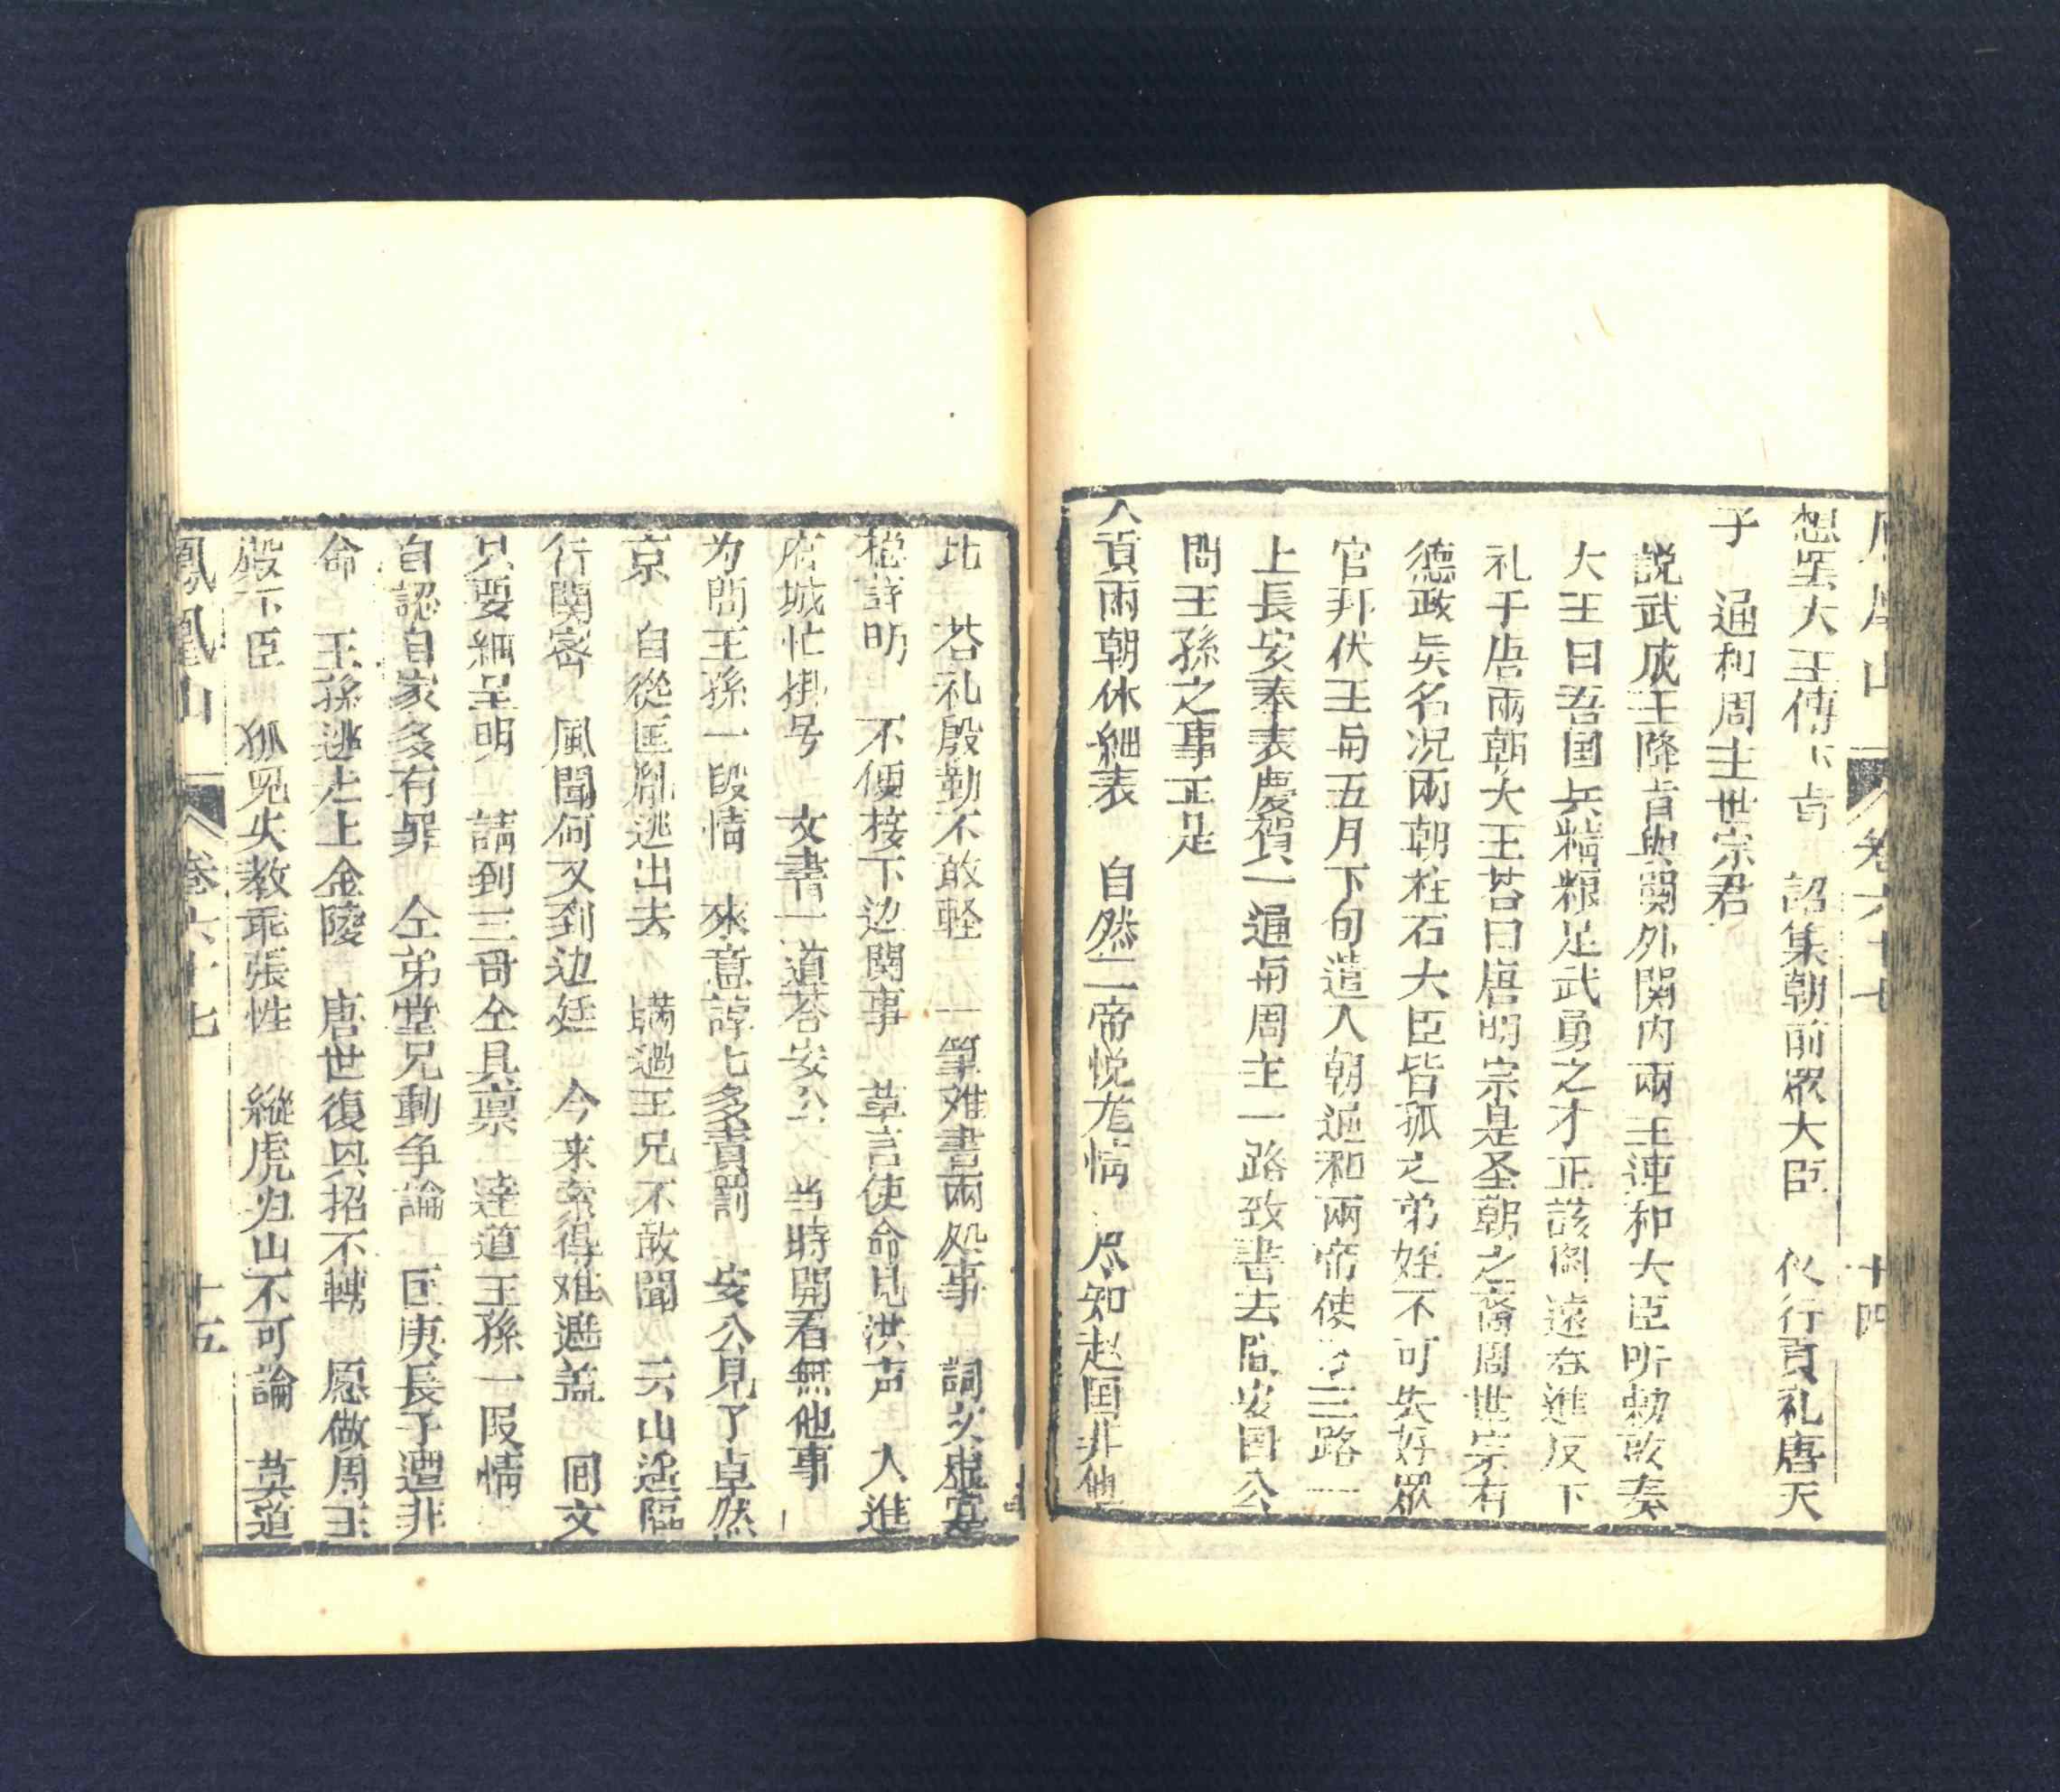 鳳凰山 卷六十七 十四
想望大王傳下旨 詔集朝前眾大臣 伩行貢礼唐天
子 通和周主世宗君
説武成王降旨與関外関内兩王連和大臣听勅啟奏
大王曰吾国兵精粮足武勇之才正該圖遠吞進反下
礼于唐兩朝大王荅曰唐明宗是圣朝之裔周世宗有
德政兵名况兩朝柱石大臣皆孤之弟姪不可失好眾
官拜伏王甪五月下旬遣人朝通和兩帝使分三路一
上長安奉表慶賀一通甪周主一路致書去臨安囯公
問王孫之事正是
入貢兩朝休細表 自然二帝悦龙情 尽知赵国非他
比 荅礼殷勤不敢軽 一筆难書兩処事 詞文虚寔
稳詳明 不便接下边関事 草言使命見洪声 人進
府城忙掛号 文書一道荅安公 当時開看無他事
为問王孫一段情 來意諄七多責罰 安公見了卓然
京 自從匡胤逃出去 瞒過王兄不敢聞 云山遥隔
行関密 風聞何又到边廷 今来索得难遮盖 囘文
只要細呈明 請到三哥仝具禀 達道王孫一叚情
自認自家多有罪 仝弟堂兄動争論 匡庚長子遭非
命 王孫逃走上金陵 唐世復兵招不轉 愿做周王
殿下臣 狐児失教乖張性 縱虎归山不可論 莫道
鳳凰山 卷六十七 十五